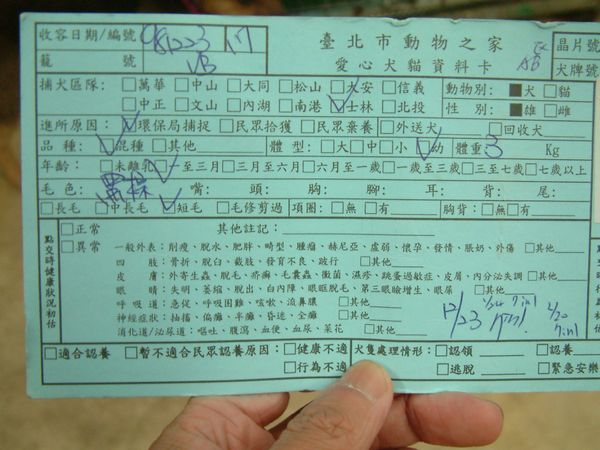 收容日期/編號 081223 17 臺北市動物之家 晶片號
籠號 VB 愛心犬貓資料卡 AB 犬牌號
捕犬區隊: □萬華 □中山 □大同 □松山 □大安 □信義 動物別: ■犬 □貓
□中正 □文山 □內湖 □南港 ☑士林 □北投 性別: ■雄 □雌
進所原因: ☑環保局捕捉 □民眾拾獲 □民眾棄養 □外送犬 □回收犬
品種: ☑混種 □其他 體型: □大 □中 □小 ☑幼 體重: 3 Kg
年齡: □未離乳 ☑一至三月 □三月至六月 □六月至一歲 □一歲至三歲 □三至七歲 □七歲以上
毛色: 嘴: 頭: 胸: 腳: 耳: 背: 尾:
□長毛 □中長毛 ☑短毛 □毛修剪過 項圈: □無 □有 胸背: □無 □有
點交時健康狀況初估
□正常 其他註記:
□異常 一般外表: 削瘦、脫水、肥胖、畸型、腫瘤、赫尼亞、虛弱、懷孕、發情、脹奶、外傷 □其他
四肢: 骨折、脫臼、截肢、發育不良、跛行 □其他
皮膚: 外寄生蟲、脫毛、疥癬、毛囊蟲、黴菌、濕疹、跳蚤過敏症、皮屑、內分泌失調 □其他
眼睛: 失明、萎縮、脫出、白內障、眼眶脫毛、第三眼瞼增生、眼屎 □其他
呼吸道: 急促、呼吸困難、咳嗽、流鼻膿 □其他
神經症狀: 抽搐、偏癱、半癱、昏迷、全癱 □其他
消化道/泌尿道: 嘔吐、腹瀉、血便、血尿、菜花 □其他
12/23
□適合認養 □暫不適合民眾認養原因: □健康不適 犬隻處理情形: □認領 □認養
□行為不適 □逃脫 □緊急安樂